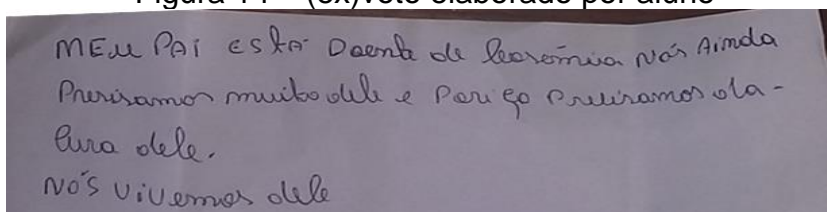 Figura 14 – (ex)voto elaborado por aluno
MEU PAI ESTÁ Doente de leosemia Nós Ainda
Precisamos muito dele e Por iço Precisamos da-
Cura dele.
NÓS ViVemos dele